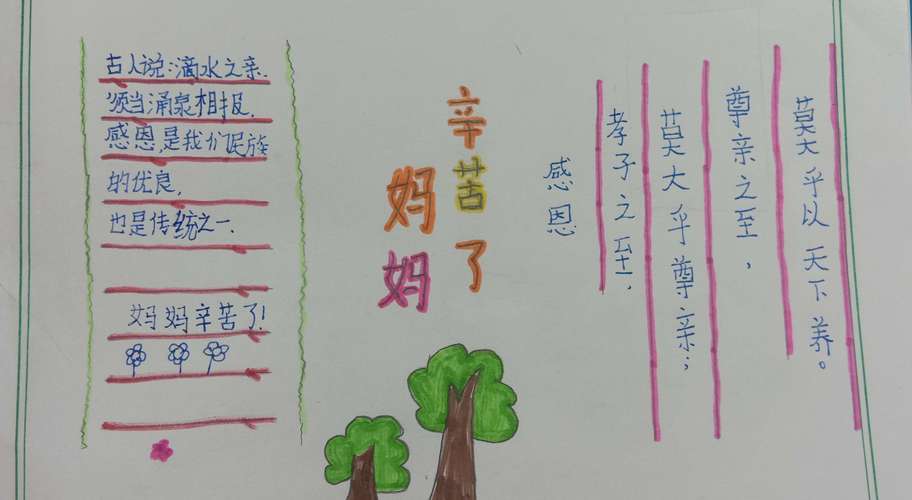 古人说:滴水之亲.
须当涌泉相报.
感恩,是我们民族
的优良,
也是传统之一.
妈妈辛苦了!
妈妈
辛苦了
感恩
孝子之至,
莫大乎尊亲;
尊亲之至,
莫大乎以天下养。